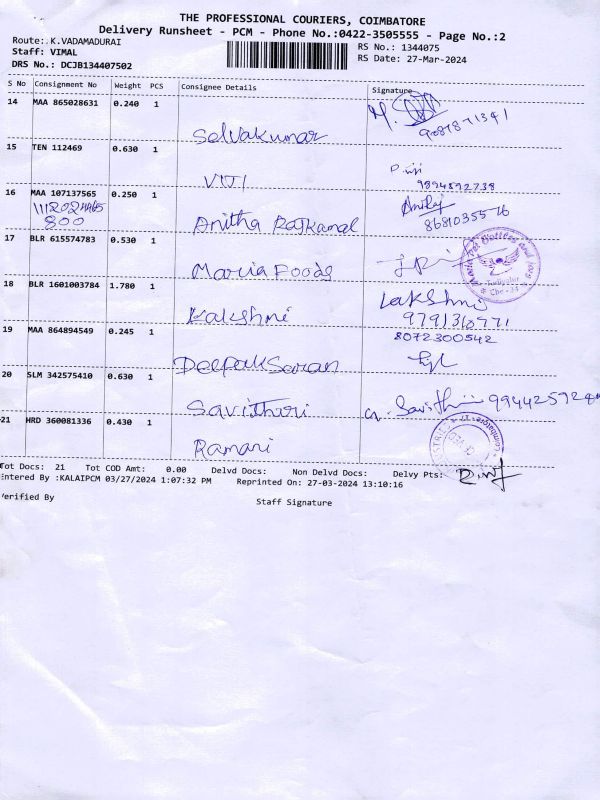 THE PROFESSIONAL COURIERS, COIMBATORE
Delivery Runsheet - PCM - Phone No.:0422-3505555 - Page No.:2
Route: K.VADAMADURAI
Staff: VIMAL
RS No.: 1344075
DRS No.: DCJB134407502
RS Date: 27-Mar-2024
S No Consignment No Weight PCS Consignee Details Signature
14 MAA 865028631 0.240 1
Selvakumar
15 TEN 112469 0.630 1
VIJI
9894592738
16 MAA 107137565 0.250 1
800
Anitha Rajkamal
17 BLR 615574783 0.530 1
Maria Foods
18 BLR 1601003784 1.780 1
Lakshmi
Kalshmi
9791310971
19 MAA 864894549 0.245 1
8072300542
Deepak Saran
20 SLM 342575410 0.630 1
Savithiri
21 HRD 360081336 0.430 1
Ramani
Tot Docs: 21 Tot COD Amt: 0.00 Delvd Docs: Non Delvd Docs: Delvy Pts:
Entered By :KALAIPCM 03/27/2024 1:07:32 PM Reprinted On: 27-03-2024 13:10:16
Verified By
Staff Signature